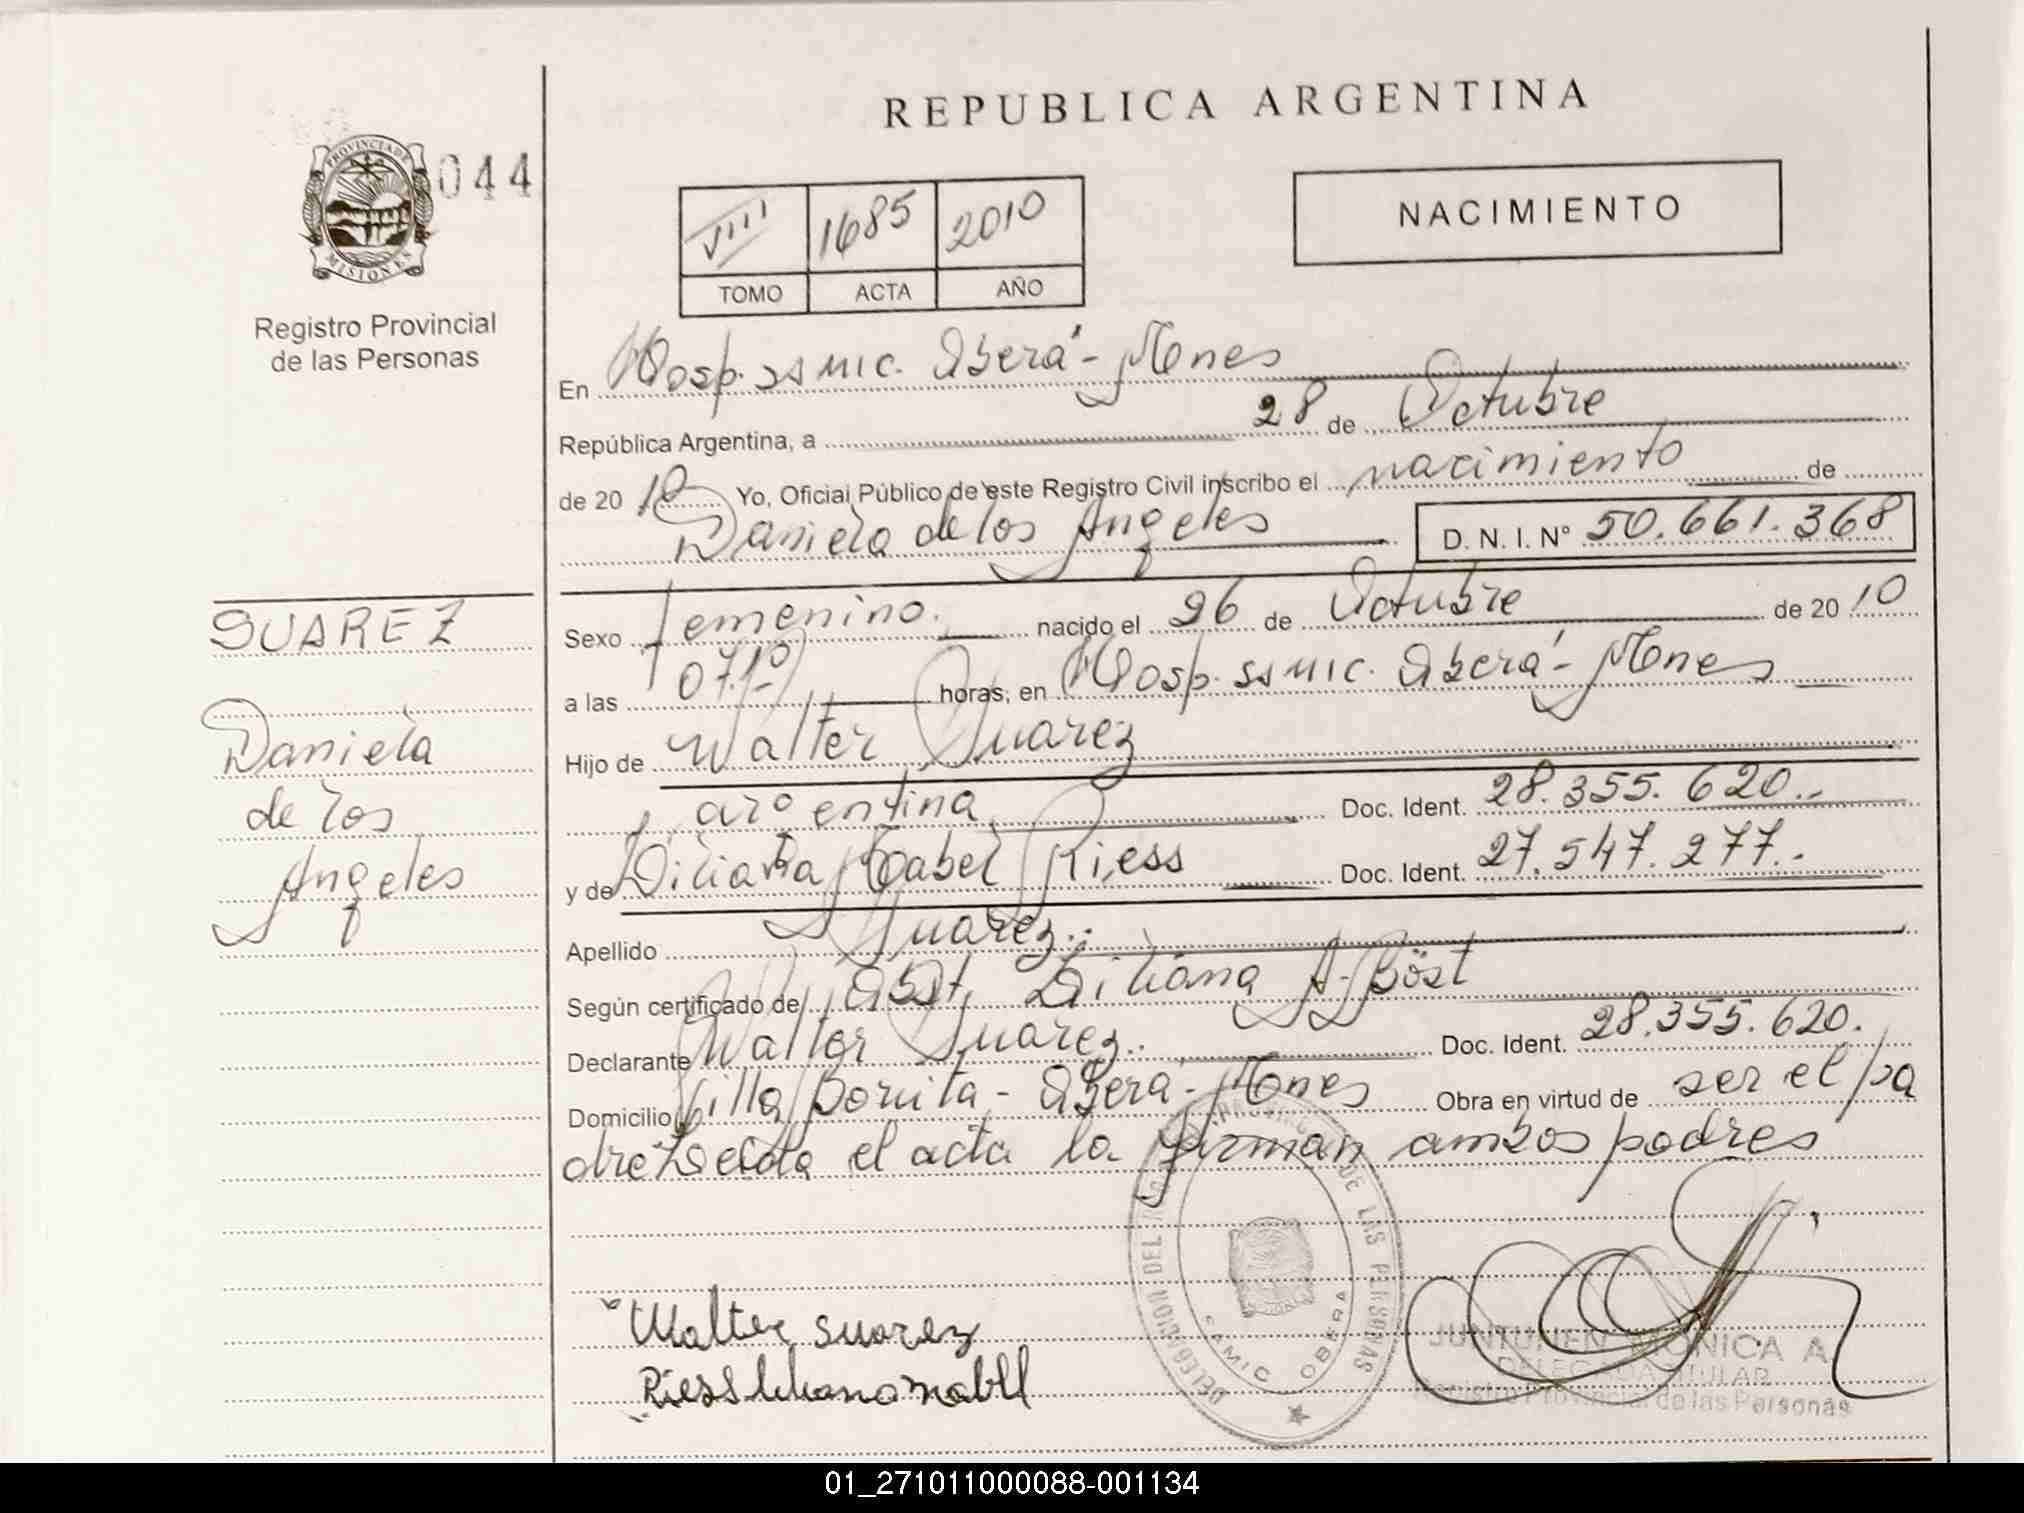 REPUBLICA ARGENTINA
PROVINCIA DE
MISIONES
044
Registro Provincial
de las Personas
VIII 1685 2010
TOMO ACTA AÑO
NACIMIENTO
En Hosp. SAMIC. Oberá - Mnes
República Argentina, a 28 de Octubre
de 2010 Yo, Oficial Público de este Registro Civil inscribo el nacimiento de
Daniela de los Angeles D. N. I. N° 50.661.368
SUAREZ
Daniela
de los
Angeles
Sexo femenino. nacido el 26 de Octubre de 2010
a las horas, en Hosp. SAMIC. Oberá - Mnes
Hijo de Walter Suarez
argentina Doc. Ident. 28.355.620..
y de Liliana Isabel Riess Doc. Ident. 27.547.277..
Apellido Suarez..
Según certificado de Obst. Liliana A. Böst
Declarante Walter Suarez.. Doc. Ident. 28.355.620.
Domicilio Villa Bonita - Oberá - Mnes Obra en virtud de ser el pa
dre el acta la firman ambos padres
Walter Suarez
Riess
DELEGACION DEL DE LAS PERSONAS
SAMIC OBERA
JUNTUNEN MONICA A.
DELEGADA TITULAR
Registro Provincial de las Personas
01_271011000088-001134